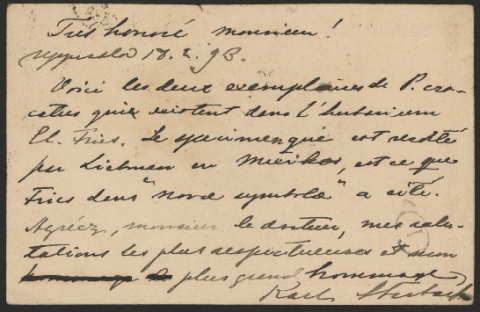 Très honoré monsieur!
Uppsala 18.2.93.
Voici les deux exemplaires de P. cro-
catus qui existent dans l'herbarium
El. Fries. Le specimen qui est récolté
par Liebman en Mexiko, est ce que
Fries dans "Novæ symbolæ" a cité.
Agréez, monsieur le docteur, mes salu-
tations les plus respectueuses et mon
plus grand hommage
Karl Starbäck